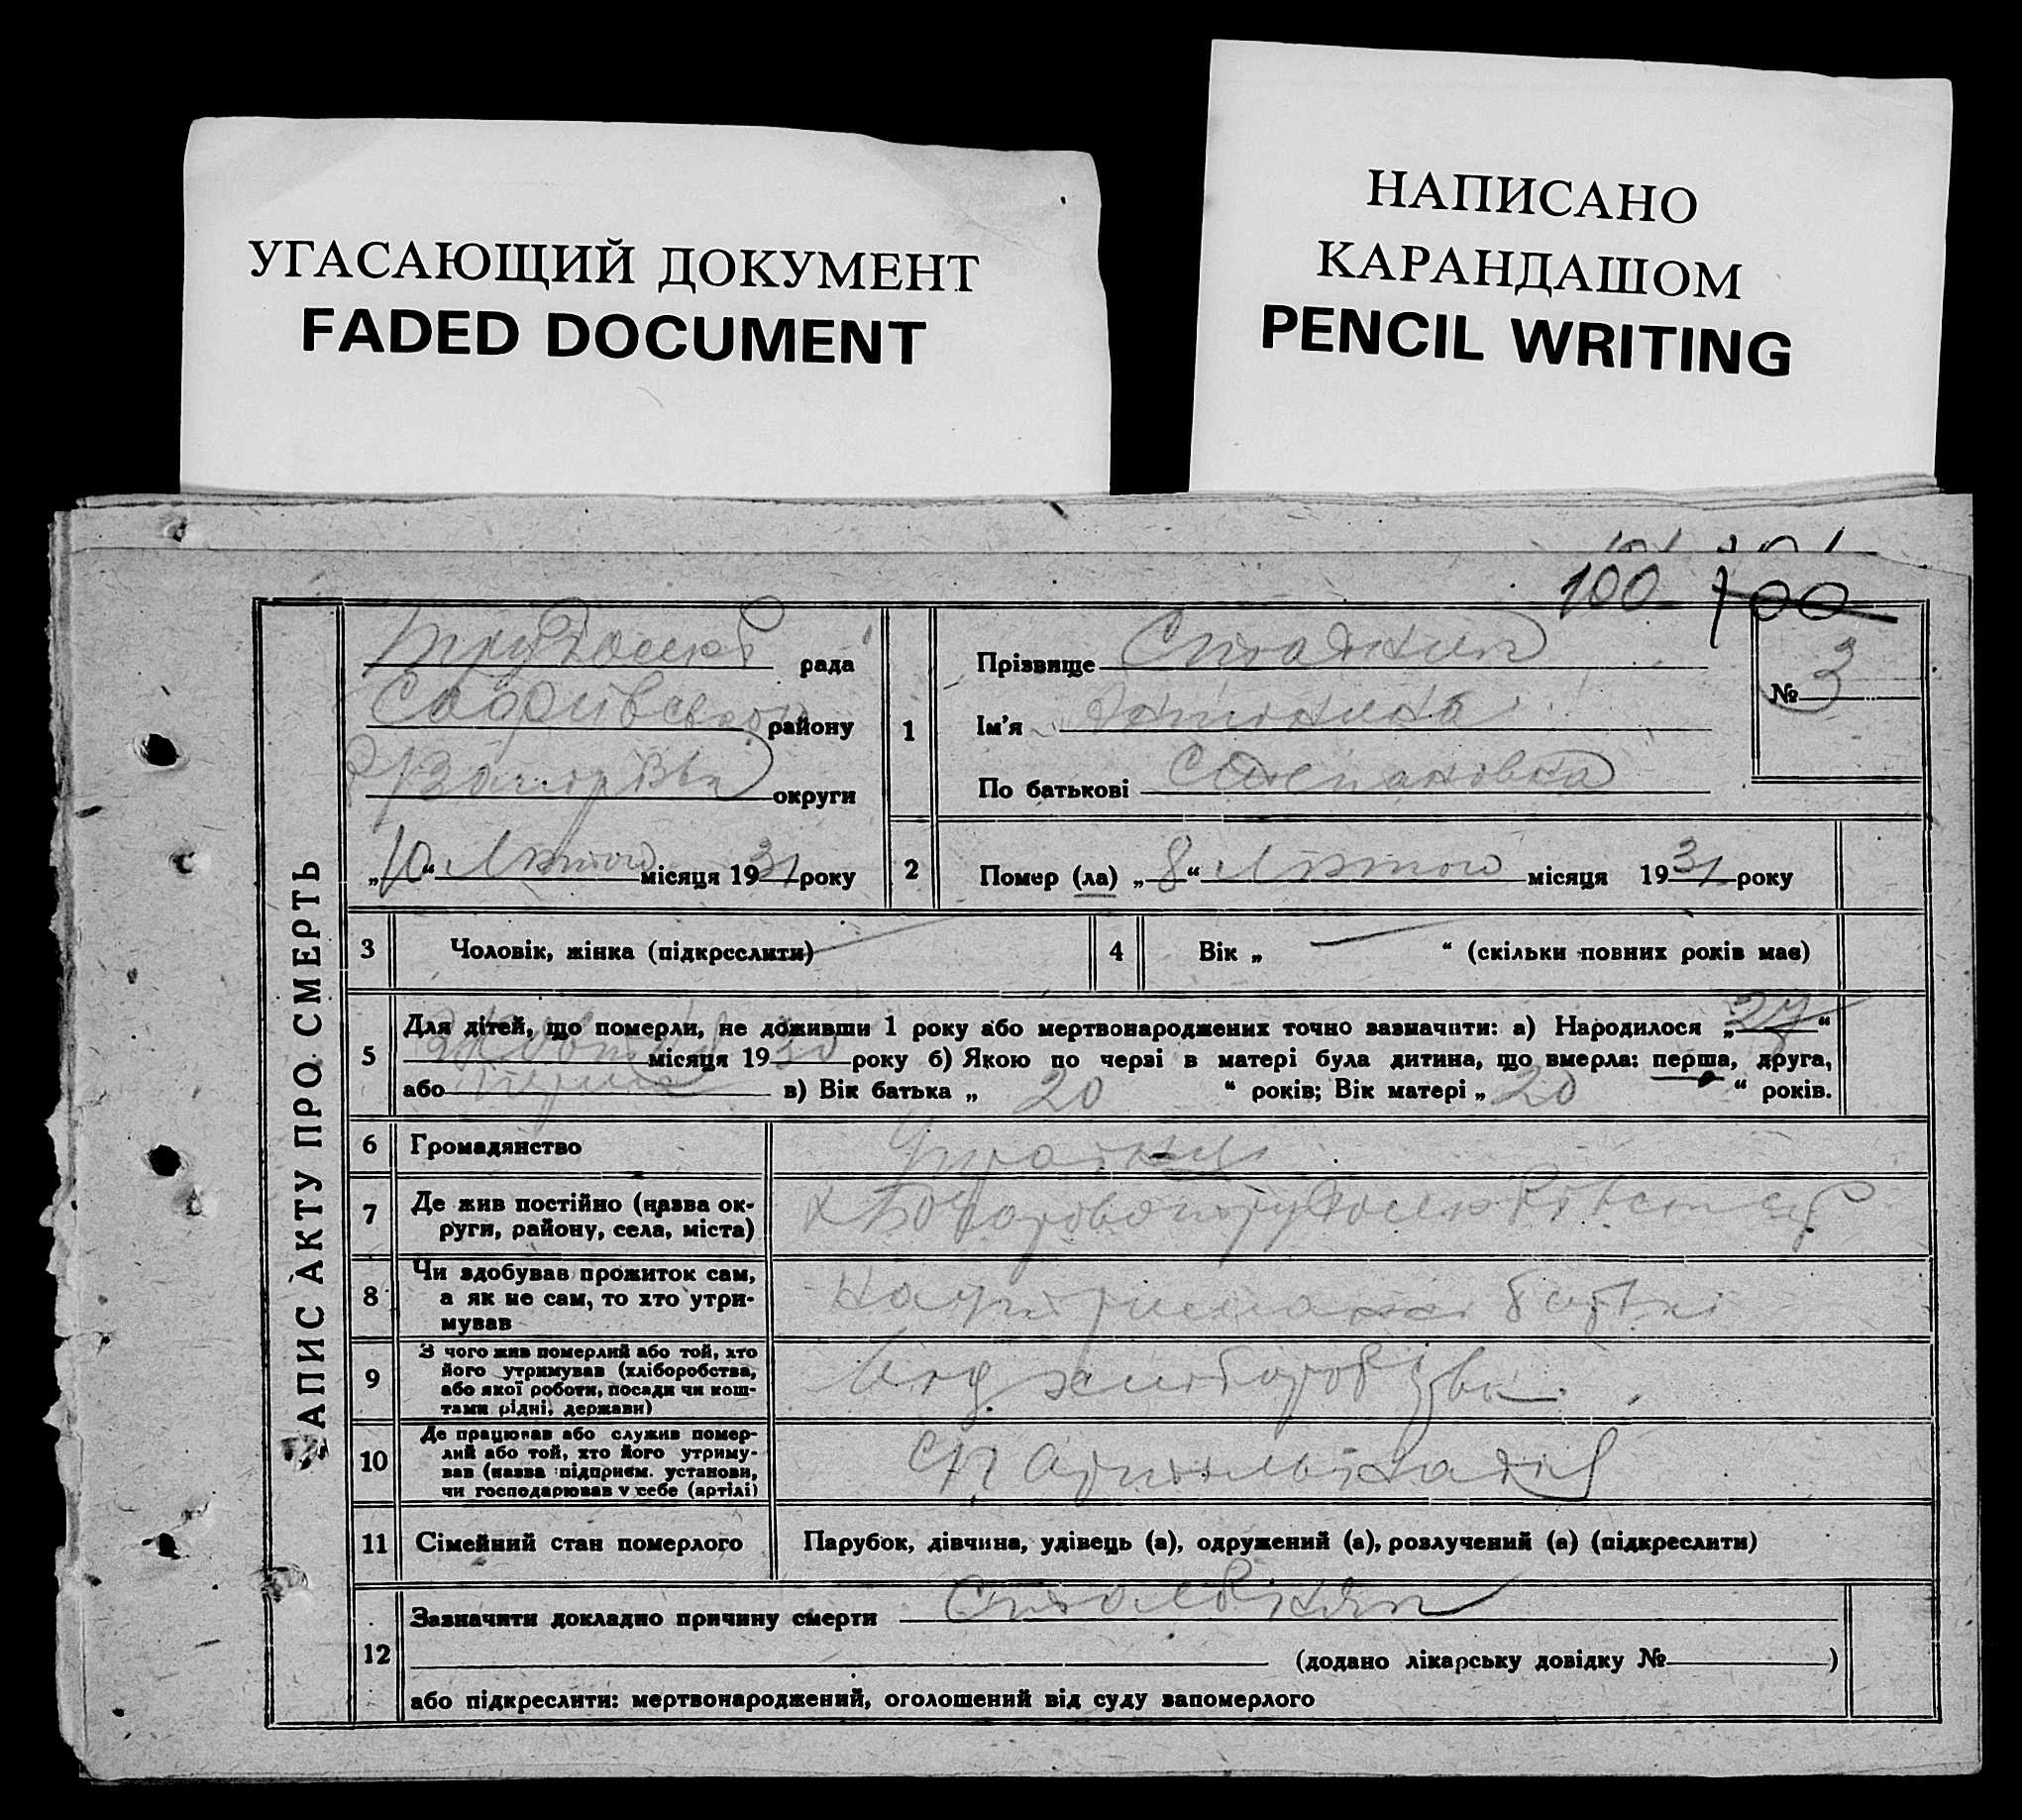 УГАСАЮЩИЙ ДОКУМЕНТ
FADED DOCUMENT
НАПИСАНО
КАРАНДАШОМ
PENCIL WRITING
100 700
ЗАПИС АКТУ ПРО СМЕРТЬ
рада
Софиівського району
округи
„10“ Лютого місяця 1931 року
1
Прізвище
Ім'я Антонина
По батькові Степановна
№ 3
2
Помер (ла) „8“ Лютого місяця 1931 року
3
Чоловік, жінка (підкреслити)
4
Вік „ — “ (скільки повних років має)
5
Для дітей, що померли, не доживши 1 року або мертвонароджених точно зазначити: а) Народилося „27“
місяця 1930 року б) Якою по черзі в матері була дитина, що вмерла: перша, друга,
або перша в) Вік батька „ 20 “ років; Вік матері „ 20 “ років.
6
Громадянство
7
Де жив постійно (назва ок-
руги, району, села, міста)
8
Чи здобував прожиток сам,
а як не сам, то хто утри-
мував
9
З чого жив померлий або той, хто
його утримував (хліборобства,
або якої роботи, посади чи кош-
тами рідні, держави)
10
Де працював або служив помер-
лий або той, хто його утриму-
вав (назва підприєм. установи,
чи господарював у себе (артілі)
11
Сімейний стан померлого
Парубок, дівчина, удівець (а), одружений (а), розлучений (а) (підкреслити)
12
Зазначити докладно причину смерти
(додано лікарську довідку № )
або підкреслити: мертвонароджений, оголошений від суду запомерлого